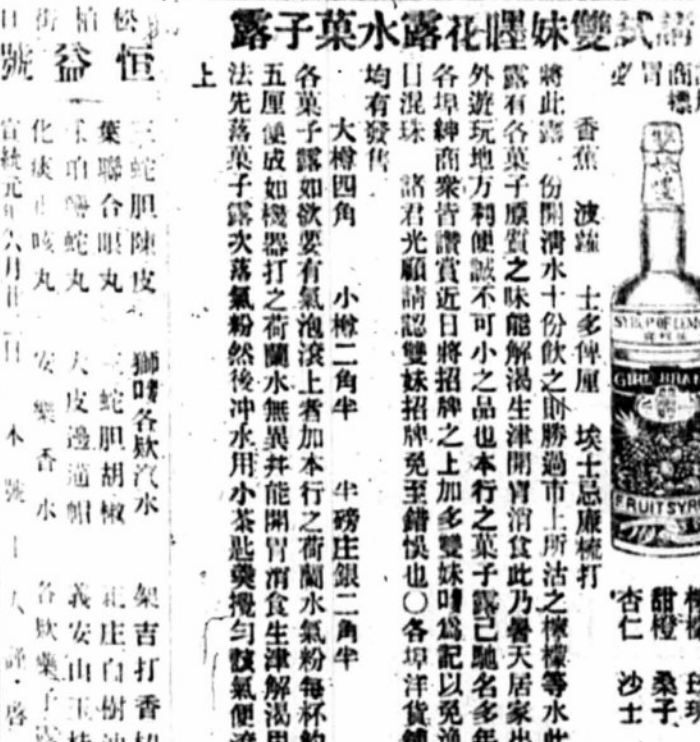 請試雙妹嚜花露水菓子露
商標
檸檬
甜橙 桑子
杏仁 沙士
SYRUP OF LEMON
GIRL BRAND
FRUIT SYRUP
香蕉 波蘿 士多俾厘 埃士忌廉梳打
將此露一份開清水十份飲之則勝過市上所沽之檸檬等水此
露有各菓子原質之味能解渴生津開胃消食此乃暑天居家出
外遊玩地方利便誠不可小之品也本行之菓子露已馳名多年
各埠紳商衆皆讚賞近日將招牌之上加多雙妹嘜爲記以免魚
目混珠 諸君光顧請認雙妹招牌免至錯悞也〇各埠洋貨舖
均有發售
大樽四角 小樽二角半 半磅庄銀二角半
各菓子露如欲要有氣泡滾上者加本行之荷蘭水氣粉每杯約
五厘便成如機器打之荷蘭水無異并能開胃消食生津解渴用
法先落菓子露次落氣粉然後冲水用小茶匙羹攪勻該氣便滾
上
恒益號
三蛇胆陳皮 獅嘜各欵汽水 架吉打香
葉聯合眼丸 三蛇胆胡椒 正庄白樹油
珀蛇丸 大皮邊通帽 義安山玉桂
化痰止咳丸 安樂香水 各欵藥子露
宣統元年六月廿一日 本號主人謹啓